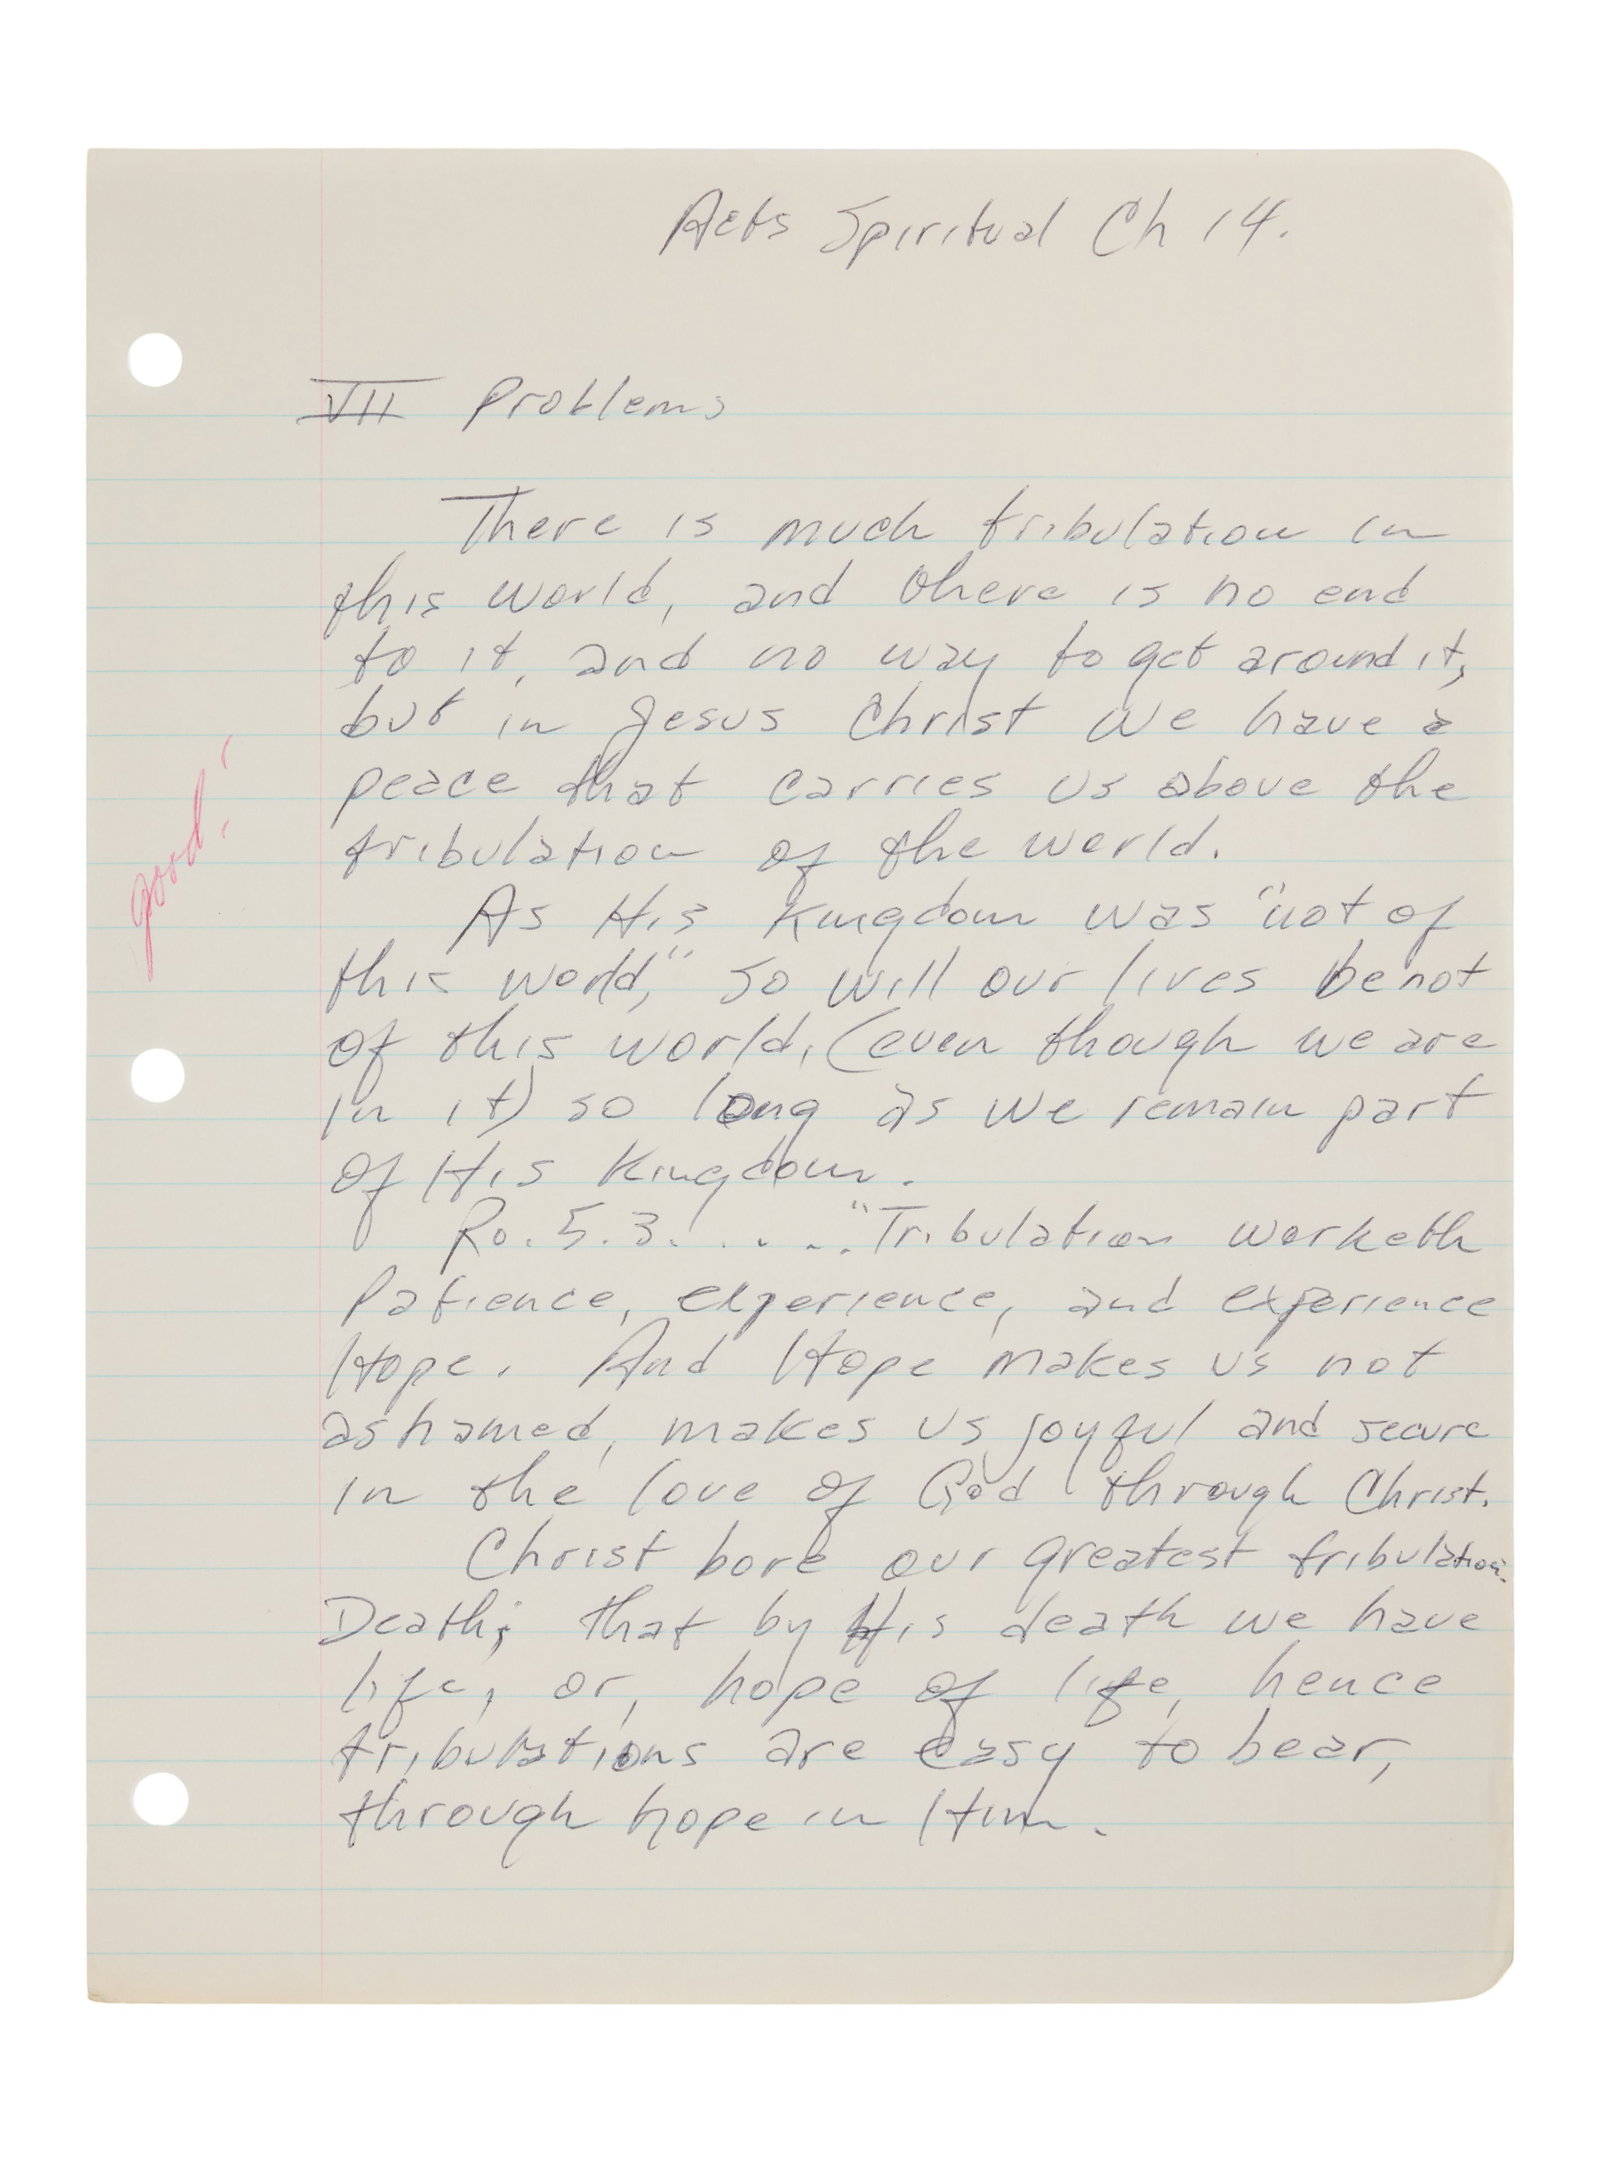 Acts Spiritual Ch 14.
VII Problems
There is much tribulation in
this world, and there is no end
to it, and no way to get around it,
but in Jesus Christ we have a
peace that carries us above the
tribulation of the world.
As His Kingdom was "not of
this world," so will our lives be not
of this world, (even though we are
in it) so long as we remain part
of His Kingdom.
Ro. 5.3. . . . . "Tribulation worketh
Patience, experience, and experience
Hope. And Hope makes us not
ashamed, makes us joyful and secure
in the love of God through Christ.
Christ bore our greatest tribulation.
Death; that by His death we have
life, or, hope of life, hence
tribulations are easy to bear,
through hope in Him.
good!